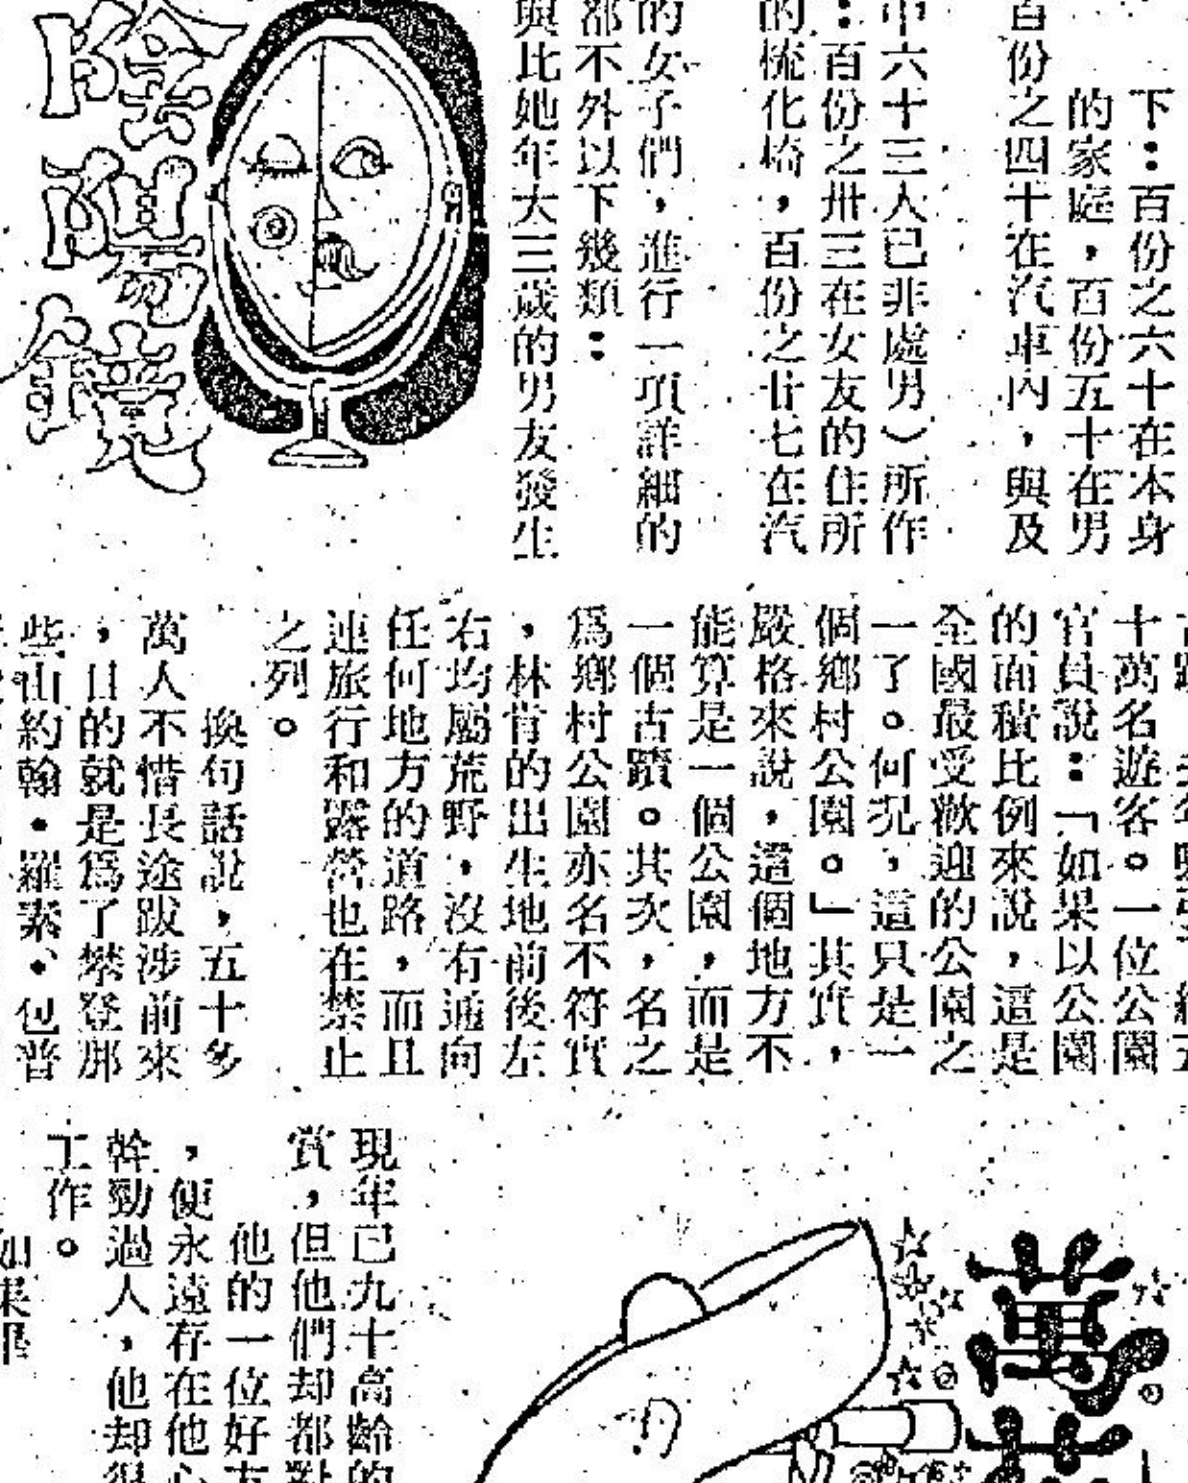 下：百份之六十在本身
的家庭，百份五十在男
百份之四十在汽車內，與及
中六十三人已非處男）所作
：百份之卅三在女友的住所
的梳化椅，百份之廿七在汽
的女子們，進行一項詳細的
都不外以下幾類：
與比她年大三歲的男友發生
陰陽鏡
十萬名遊客。一位公園
官員說：「如果以公園
的面積比例來說，這是
全國最受歡迎的公園之
一了。何況，這只是一
個鄉村公園。」其實，
嚴格來說，這個地方不
能算是一個公園，而是
一個古蹟。其次，名之
爲鄉村公園亦名不符實
，林肯的出生地前後左
右均屬荒野，沒有通向
任何地方的道路，而且
連旅行和露營也在禁止
之列。
換句話說，五十多
萬人不惜長途跋涉前來
，目的就是爲了攀登那
些山約翰・羅素・包普
萬
現年已九十高齡的
賞，但他們却都對
他的一位好友
，便永遠存在他心
幹勁過人，他却很
工作。
如果